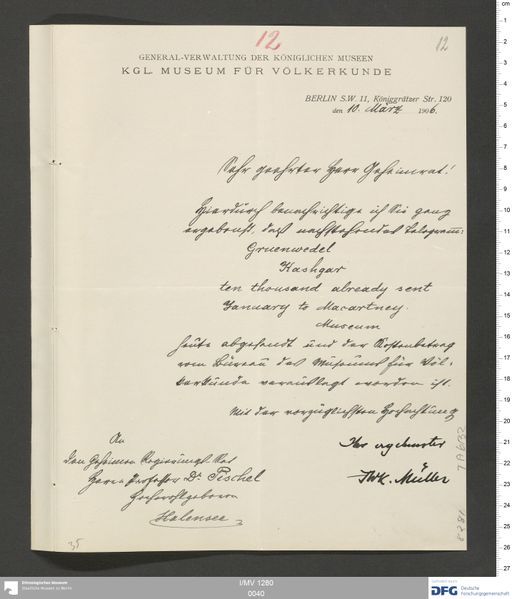 12
12
GENERAL-VERWALTUNG DER KÖNIGLICHEN MUSEEN
KGL. MUSEUM FÜR VÖLKERKUNDE
BERLIN S.W. 11, Königgrätzer Str. 120
den 10. März 1906.
Sehr geehrter Herr Geheimrat!
Hierdurch benachrichtige ich Sie ganz
ergebenst, daß nachstehendes Telegramm:
Gruenwedel
Kashgar
ten thousand already sent
January to Macartney.
Museum
heute abgesandt und der Kostenbetrag
vom Bureau des Museums für Völ-
kerkunde verauslagt worden ist.
Mit der vorzüglichsten Hochachtung
Ihr ergebenster
FWK. Müller
An
den Geheimen Regierungs-Rat
Herrn Professor Dr. Pischel
Hochwohlgeboren
Halensee
35
Ethnologisches Museum
Staatliche Museen zu Berlin
I/MV 1260
0040
DFG Deutsche
Forschungsgemeinschaft